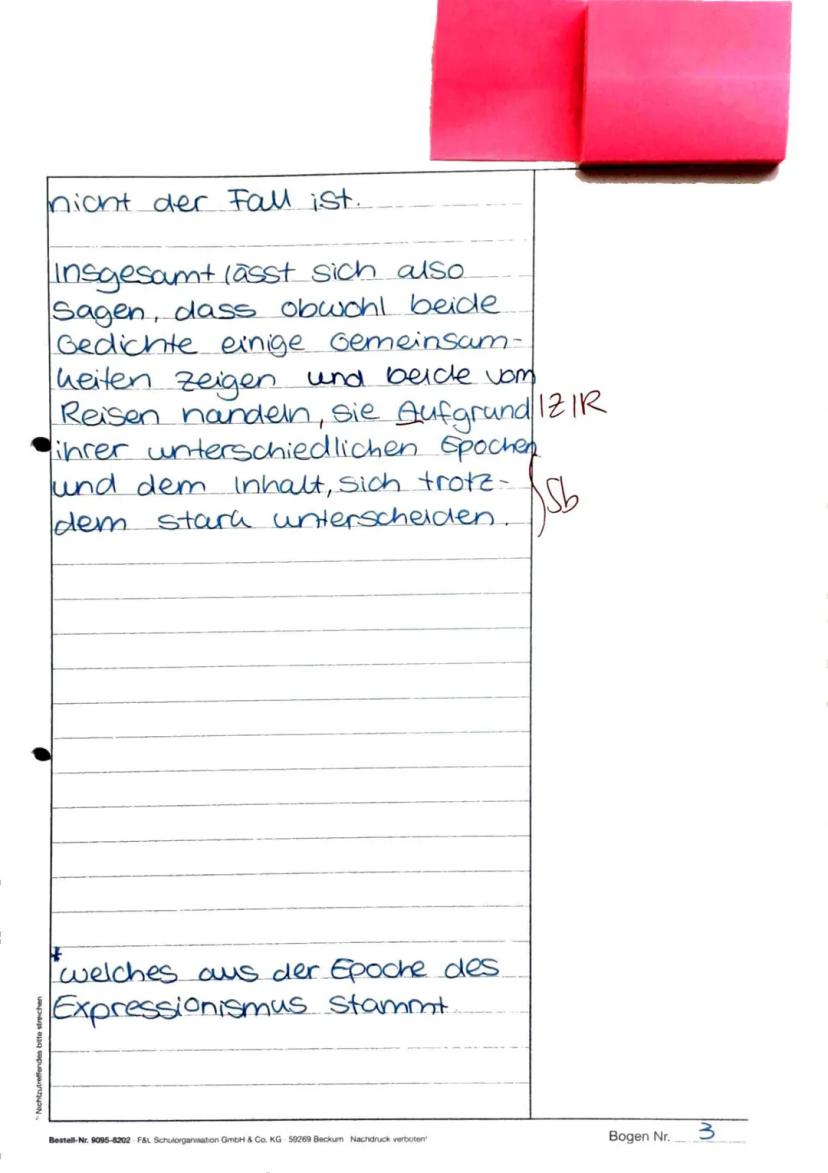 nicht der Fall ist.
Insgesamt lässt sich also
sagen, dass obwohl beide
Gedichte einige Gemeinsam-
heiten zeigen und beide vom
Reisen handeln, sie Aufgrund IZIR
ihrer unterschiedlichen Epochen
und dem Inhalt, sich trotz- Sb
dem stark unterscheiden.
* welches aus der Epoche des
Expressionismus stammt
*) Nichtzutreffendes bitte streichen
Bestell-Nr. 9095-8202 · F&L Schulorganisation GmbH & Co. KG · 59269 Beckum · Nachdruck verboten!
Bogen Nr. 3